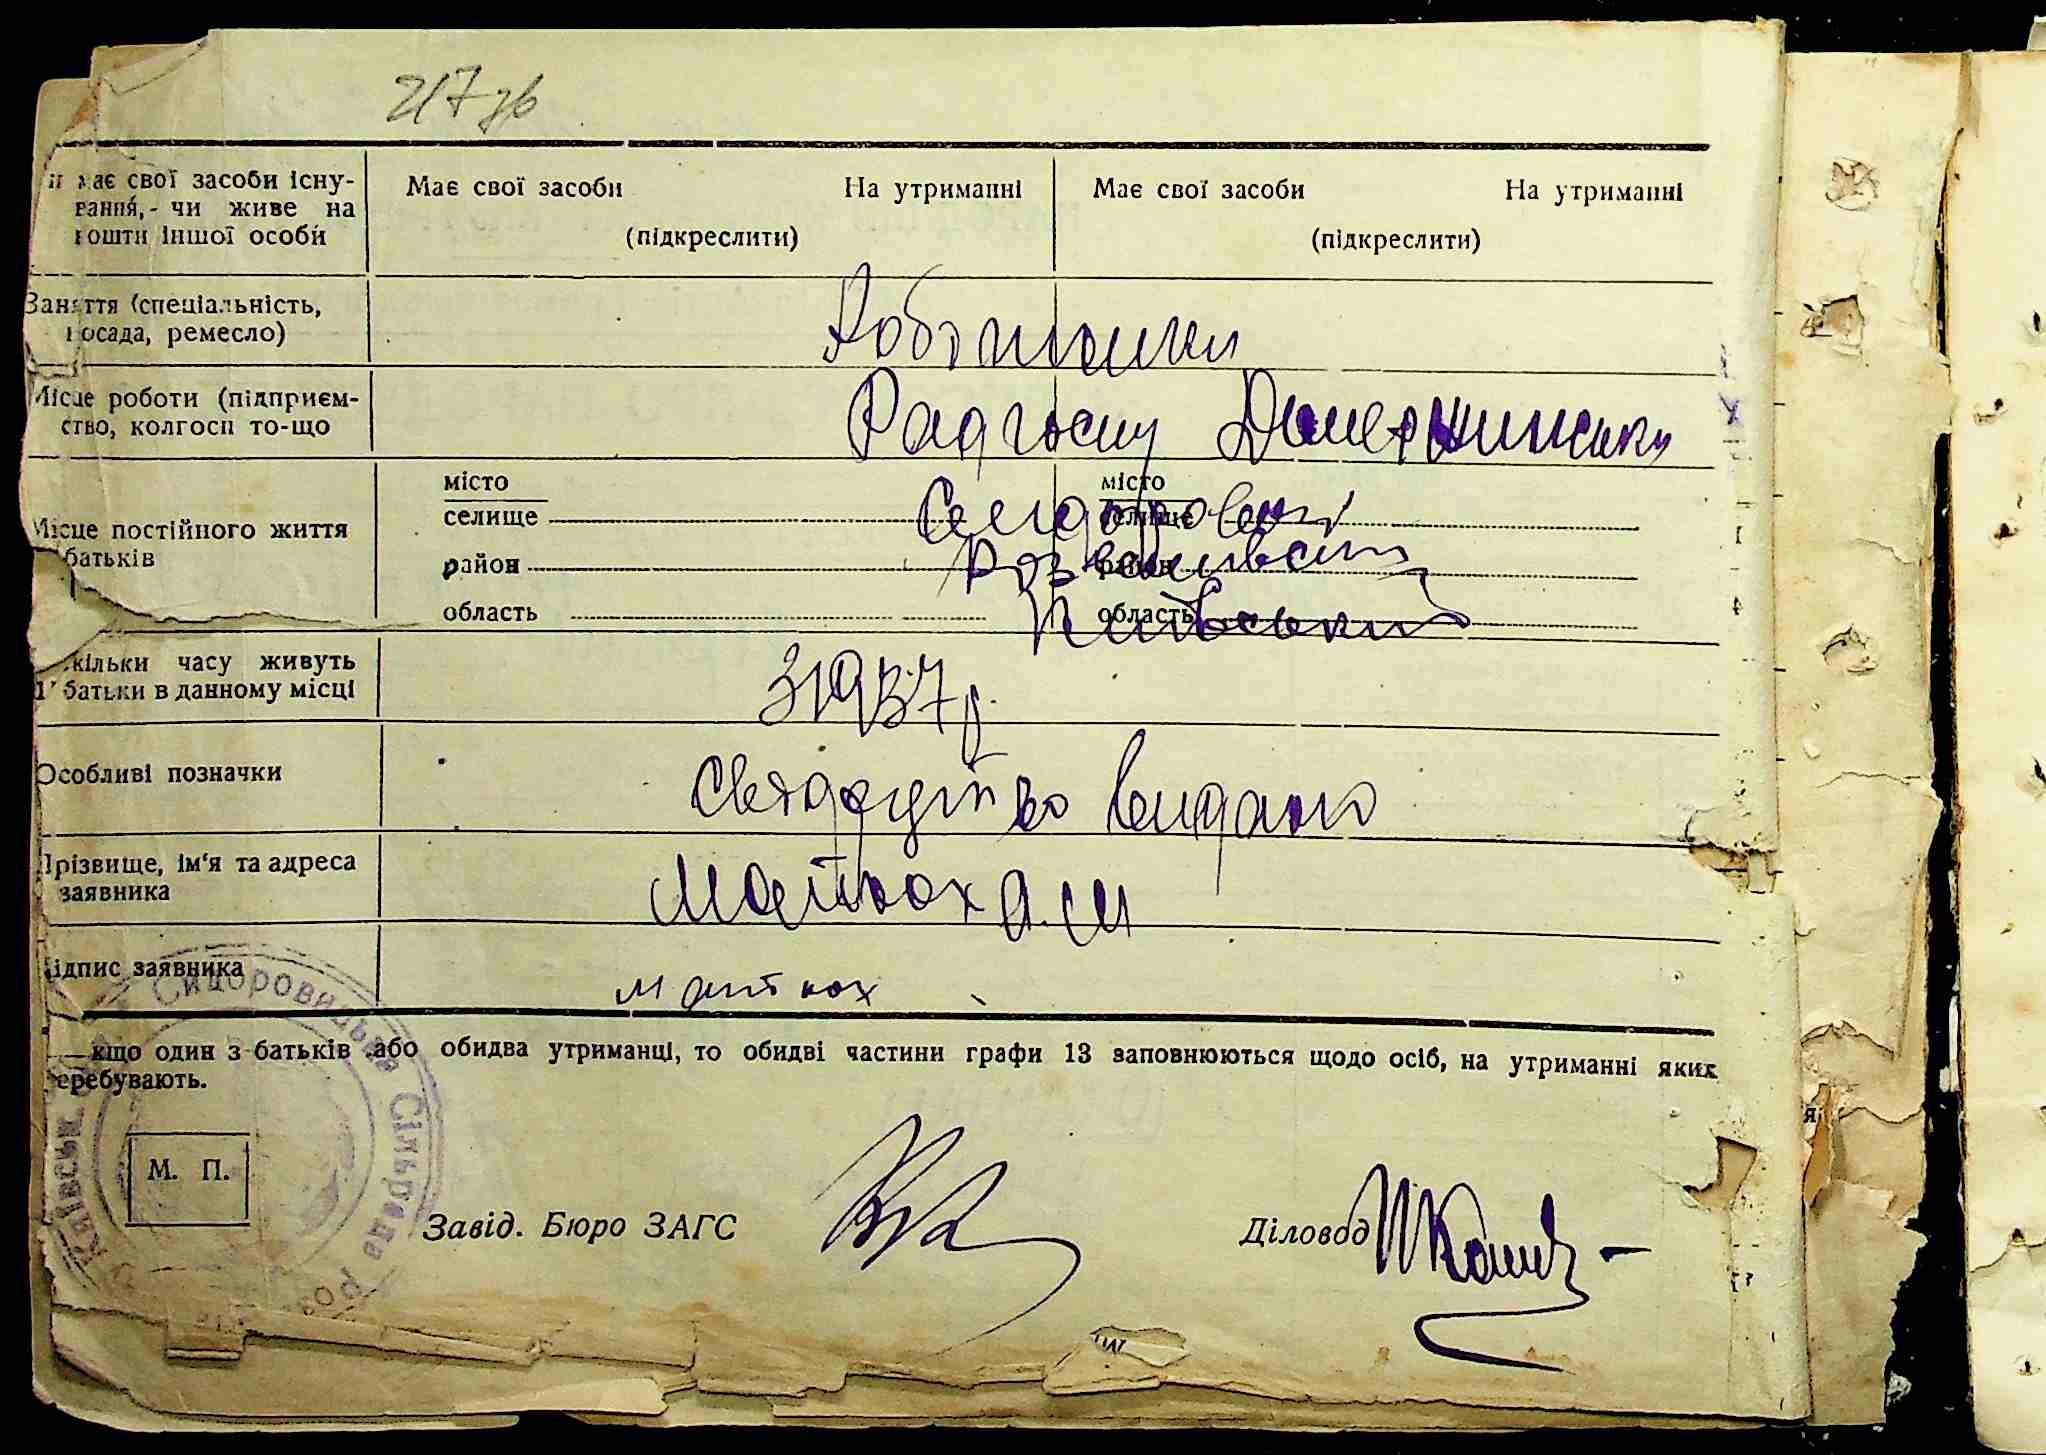 217 зв
має свої засоби існу-
вання, - чи живе на
кошти іншої особи
Має свої засоби На утриманні
(підкреслити)
Має свої засоби На утриманні
(підкреслити)
Заняття (спеціальність,
посада, ремесло)
Робітники
Місце роботи (підприєм-
ство, колгосп то-що
Радгоспу
Місце постійного життя
батьків
місто
селище
район
область
місто
селище
район
область
Сидорович
Розважівськ
Київський
скільки часу живуть
батьки в данному місці
З 1937 р.
Особливі позначки
Свидоцтво видано
Прізвище, ім'я та адреса
заявника
Матюх
Підпис заявника
Матюх
Якщо один з батьків або обидва утриманці, то обидві частини графи 13 заповнюються щодо осіб, на утриманні яких
перебувають.
Сидоровицька Сільрада
Київськ.
М. П.
Завід. Бюро ЗАГС
Діловод